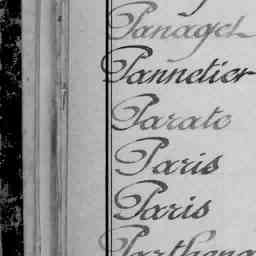 Panagel
Pannetier
Parato
Paris
Paris
Parthena